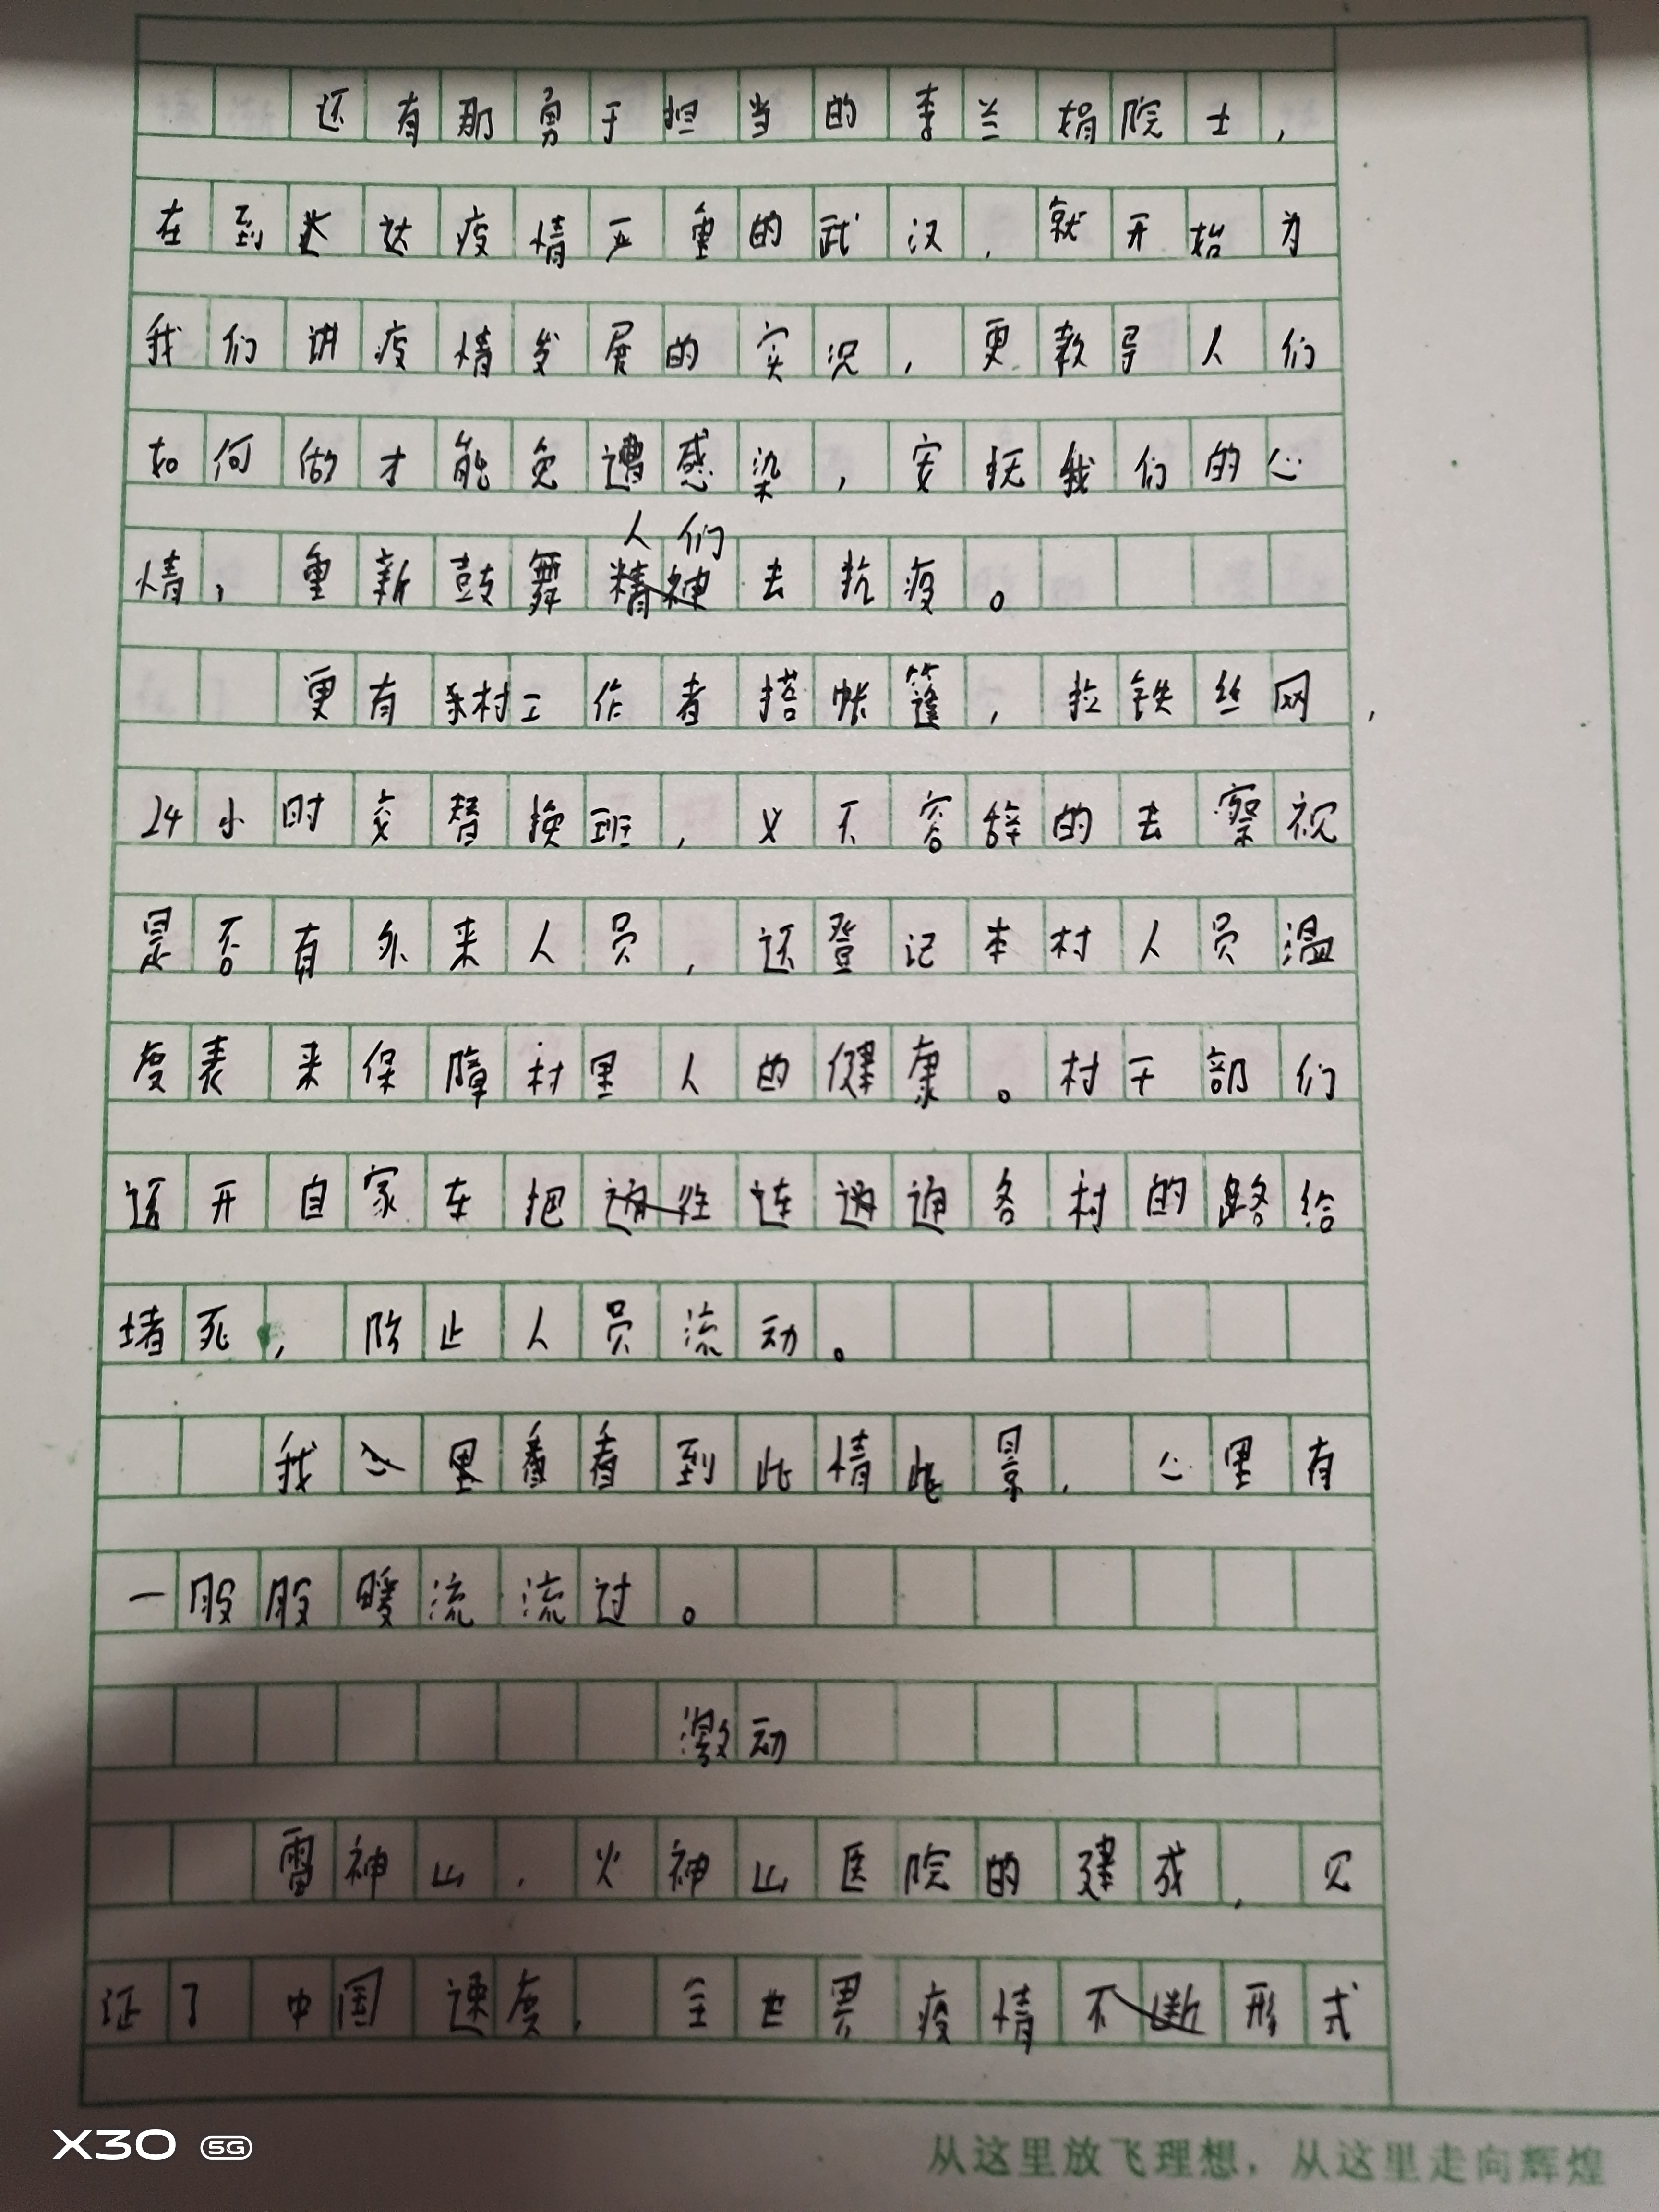 还有那勇于担当的李兰娟院士，
在到达疫情严重的武汉，就开始为
我们讲疫情发展的实况，更教导人们
如何做才能免遭感染，安抚我们的心
情，重新鼓舞人们去抗疫。
更有乡村工作者搭帐篷，拉铁丝网，
24小时交替换班，义不容辞的去察视
是否有外来人员，还登记本村人员温
度表来保障村里人的健康。村干部们
还开自家车把连通各村的路给
堵死，防止人员流动。
我看到此情此景，心里有
一股股暖流流过。
激动
雷神山、火神山医院的建成，见
证了中国速度，全世界疫情形式
X30 5G
从这里放飞理想，从这里走向辉煌